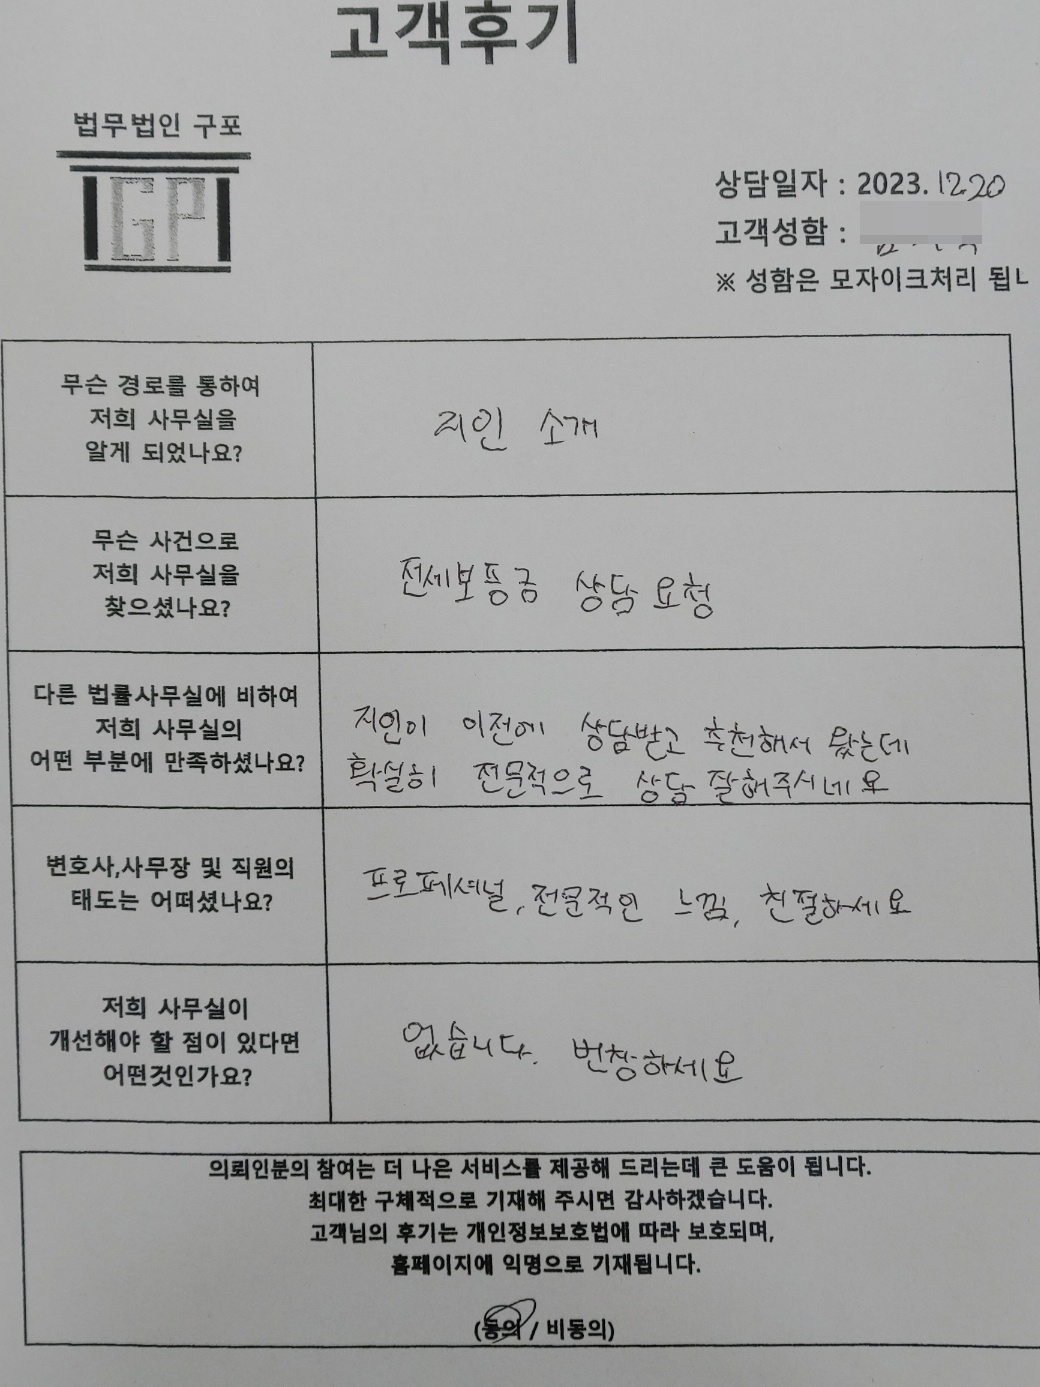 고객후기
법무법인 구포
GP
상담일자 : 2023. 12.20
고객성함 :
※ 성함은 모자이크처리 됩ㄴ
무슨 경로를 통하여
저희 사무실을
알게 되었나요?
지인 소개
무슨 사건으로
저희 사무실을
찾으셨나요?
전세보증금 상담 요청
다른 법률사무실에 비하여
저희 사무실의
어떤 부분에 만족하셨나요?
지인이 이전에 상담받고 추천해서 왔는데
확실히 전문적으로 상담 잘해주시네요
변호사,사무장 및 직원의
태도는 어떠셨나요?
프로페셔널, 전문적인 느낌, 친절하세요
저희 사무실이
개선해야 할 점이 있다면
어떤것인가요?
없습니다. 번창하세요
의뢰인분의 참여는 더 나은 서비스를 제공해 드리는데 큰 도움이 됩니다.
최대한 구체적으로 기재해 주시면 감사하겠습니다.
고객님의 후기는 개인정보보호법에 따라 보호되며,
홈페이지에 익명으로 기재됩니다.
(동의 / 비동의)